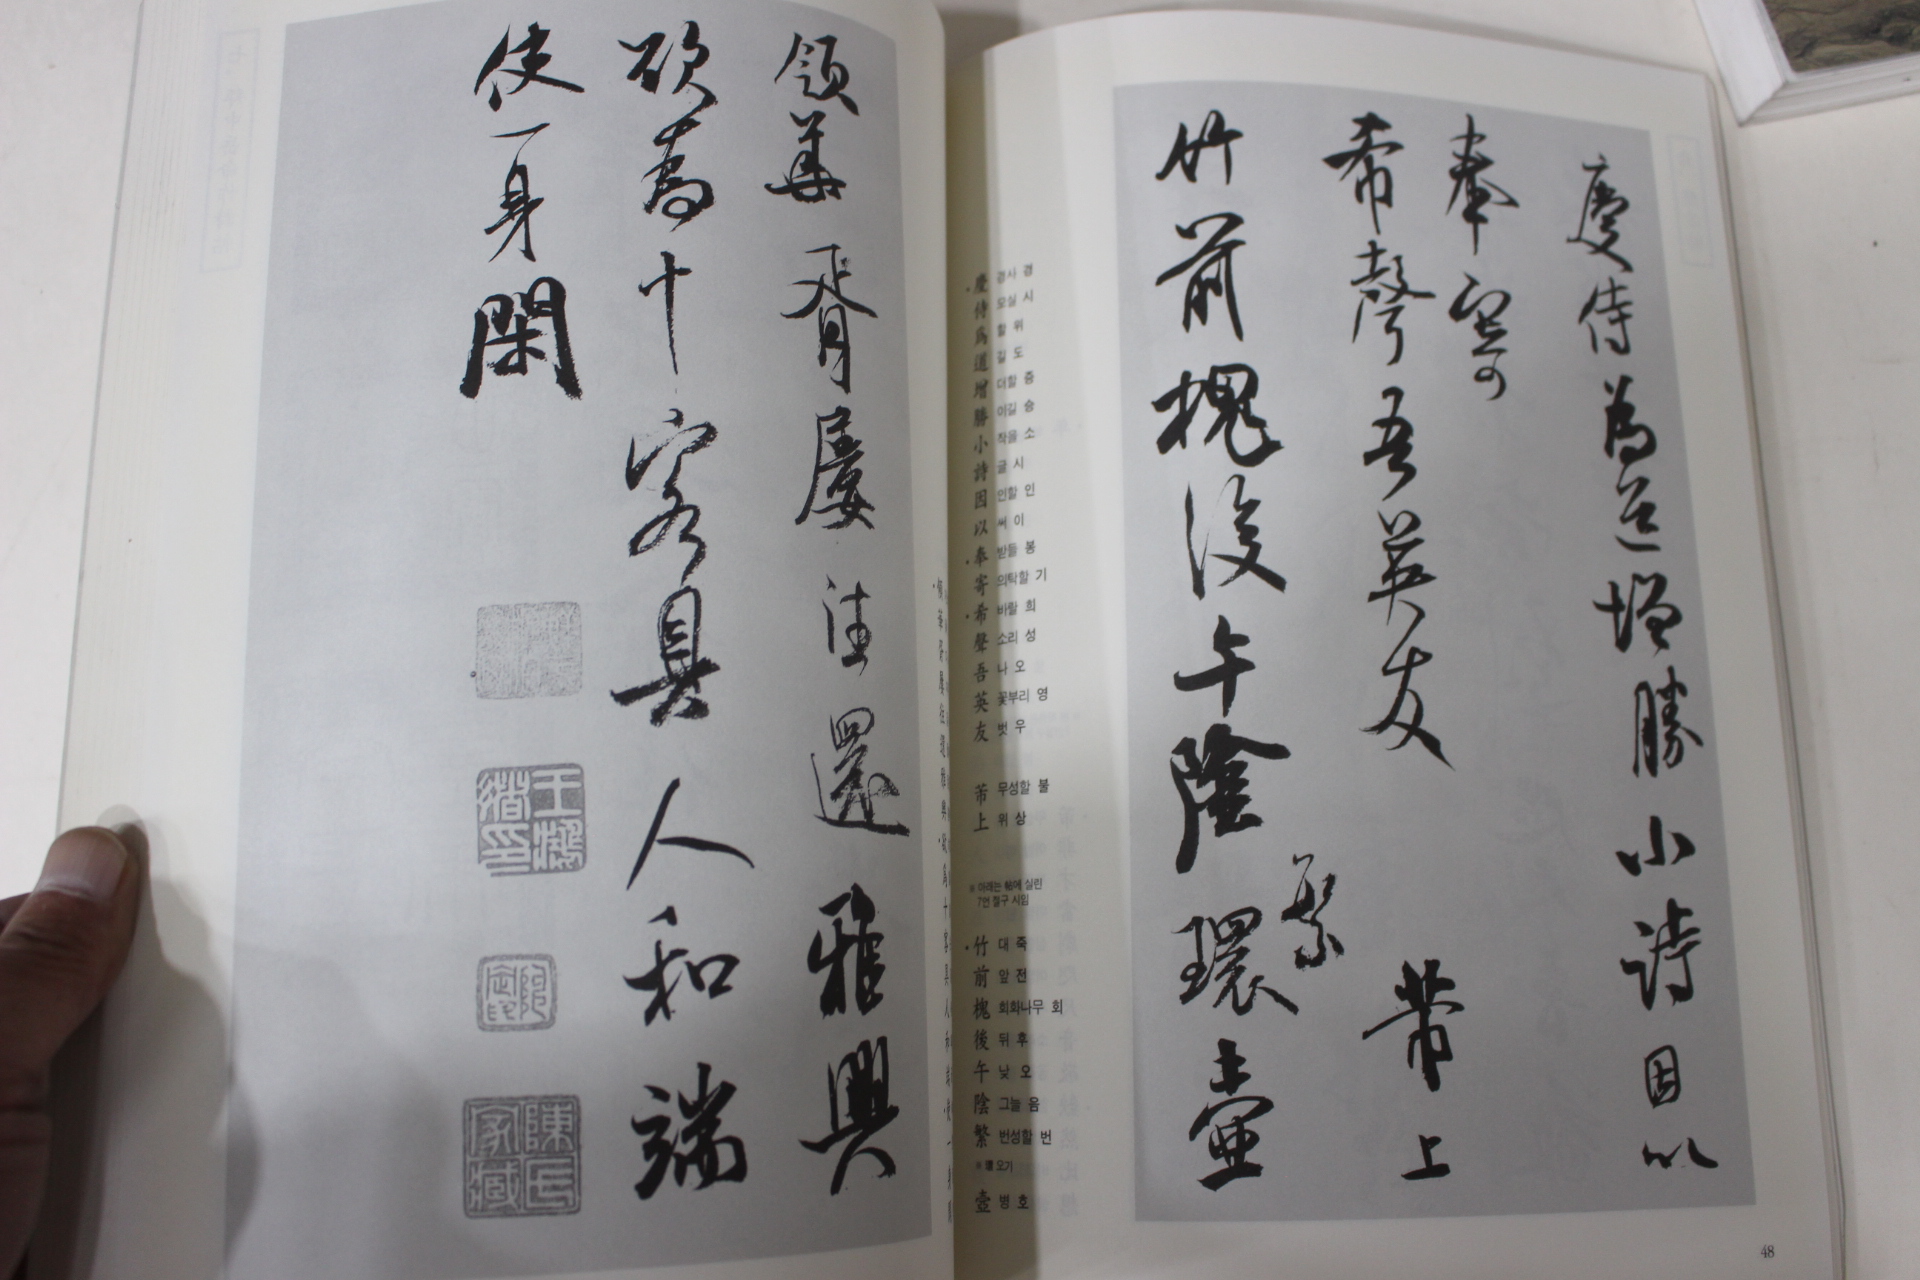 慶侍為道增勝小詩因以
奉寄
希聲吾英友
芾上
竹前槐後午陰繁
環壺
慶 경사 경
侍 모실 시
爲 할 위
道 길 도
增 더할 증
勝 이길 승
小 작을 소
詩 글 시
因 인할 인
以 써 이
奉 받들 봉
寄 의탁할 기
希 바랄 희
聲 소리 성
吾 나 오
英 꽃부리 영
友 벗 우
芾 무성할 불
上 위 상
※ 아래는 帖에 실린
7언 절구 시임
竹 대 죽
前 앞 전
槐 회화나무 회
後 뒤 후
午 낮 오
陰 그늘 음
繁 번성할 번
※環 오기
壺 병 호
48
領華胥屢往還雅興
欲為十客具人和端
使一身閑
陳氏家藏